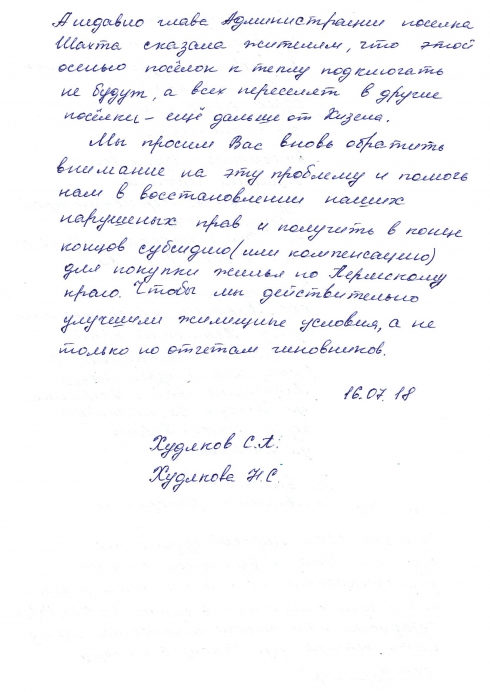 А недавно глава Администрации поселка
Шахта сказала жителям, что этой
осенью посёлок к теплу подключать
не будут, а всех переселят в другие
посёлки - ещё дальше от Кизела.
Мы просим Вас вновь обратить
внимание на эту проблему и помочь
нам в восстановлении наших
нарушеных прав и получить в конце
концов субсидию (или компенсацию)
для покупки жилья по Пермскому
краю. Чтобы мы действительно
улучшили жилищные условия, а не
только по отчетам чиновников.
16.07.18
Худяков С.А.
Худякова Н.С.